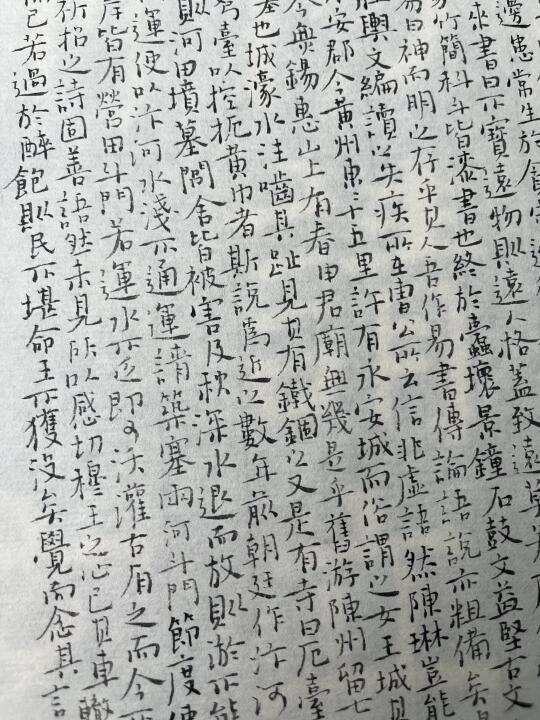 邊患常生於貪
來書曰不寶遠物則遠人格蓋致遠
竹簡科斗皆漆書也終於蠹壞景鐘石鼓文益堅古文
易曰神而明之存乎其人吾作易書傳論語說亦粗備矣
輿文編讀之失疾所在曹公所云信非虛語然陳琳豈能
安郡今黃州東三十五里許有永安城而俗謂之女王城
今無錫惠山上有春申君廟無幾是乎舊游陳州留七
也城濠水注嚙其趾見有鐵錮之又是有寺曰厄臺
臺以控扼黃巾者斯說為近之數年前朝廷作汴河
則河田墳墓閭舍皆被害及秋深水退而放則淤不能
運使以汴河水淺不通運請築塞兩河斗門節度
岸皆有營田斗門若運水不乏即可沃灌古有之而今
祈招之詩固善語然未見所以感切穆王之心已其車轍
已若過於醉飽則民不堪命王不獲沒矣覺而念其言